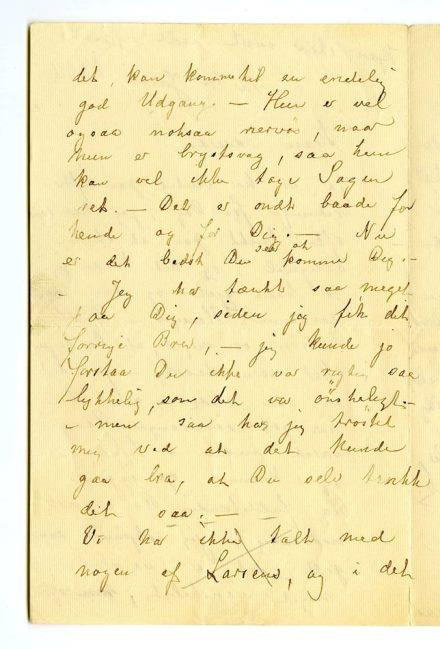 det, kan komme til en endelig
god Udgang. — Hun er vel
ogsaa noksaa nervøs, naar
hun er brystsvag, saa hun
kan vel ikke tage Sagen
ret. — Det er ondt baade for
hende og for Dig. — Nu
er det bedst Du ser at komme Dig. —
— Jeg har tænkt saa meget
paa Dig, siden jeg fik det
forrige Brev, — jeg kunde jo
forstaa Du ikke var rigtig saa
lykkelig, som det var ønskeligt. —
— men saa har jeg trøstet
mig ved at det kunde
gaa bra, at Du selv trodde
det saa. — —
Vi har ikke talt med
nogen af Larsens, og i det